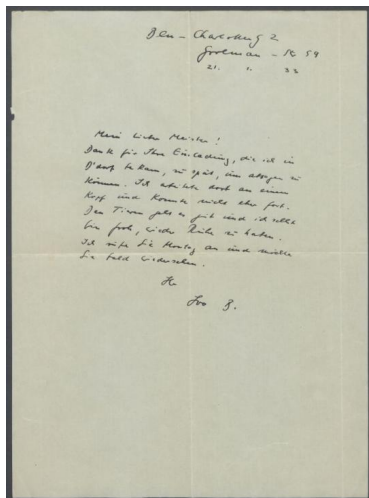 Bln - Charlottenbg 2
Grolman - Str 59
21. 1. 33
Mein lieber Meister!
Dank für Ihre Einladung, die ich in
D'dorf bekam, zu spät, um absagen zu
können. Ich arbeitete dort an einem
Kopf und konnte nicht eher fort.
Den Tieren geht es gut und ich selbst
bin froh, wieder Ruhe zu haben.
Ich rufe Sie Montag an und möchte
Sie bald wiedersehen.
Ihr
B.